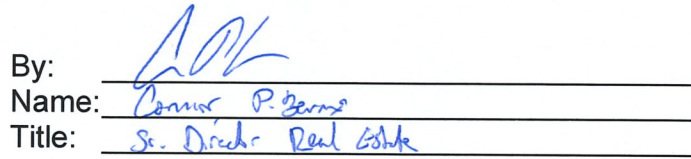 By:
Name: Connor P.
Title: Sr. Director Real Estate